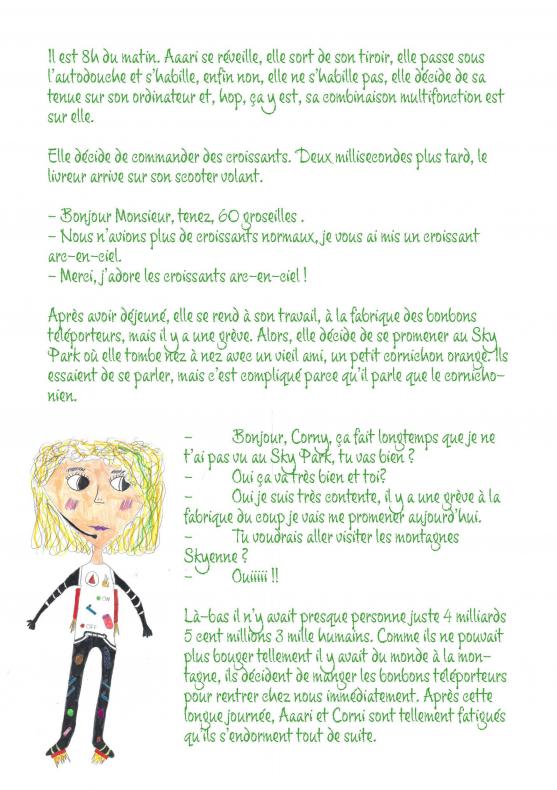 Il est 8h du matin. Aaari se réveille, elle sort de son tiroir, elle passe sous
l'autodouche et s'habille, enfin non, elle ne s'habille pas, elle décide de sa
tenue sur son ordinateur et, hop, ça y est, sa combinaison multifonction est
sur elle.
Elle décide de commander des croissants. Deux millisecondes plus tard, le
livreur arrive sur son scooter volant.
– Bonjour Monsieur, tenez, 60 groseilles .
– Nous n'avions plus de croissants normaux, je vous ai mis un croissant
arc-en-ciel.
– Merci, j'adore les croissants arc-en-ciel !
Après avoir déjeuné, elle se rend à son travail, à la fabrique des bonbons
téléporteurs, mais il y a une grève. Alors, elle décide de se promener au Sky
Park où elle tombe nez à nez avec un vieil ami, un petit cornichon orange. Ils
essaient de se parler, mais c'est compliqué parce qu'il parle que le cornicho-
nien.
– Bonjour, Corny, ça fait longtemps que je ne
t'ai pas vu au Sky Park, tu vas bien ?
– Oui ça va très bien et toi?
– Oui je suis très contente, il y a une grève à la
fabrique du coup je vais me promener aujourd'hui.
– Tu voudrais aller visiter les montagnes
Skyenne ?
– Ouiiiii !!
Là-bas il n'y avait presque personne juste 4 milliards
5 cent millions 3 mille humains. Comme ils ne pouvait
plus bouger tellement il y avait du monde à la mon-
tagne, ils décident de manger les bonbons téléporteurs
pour rentrer chez nous immédiatement. Après cette
longue journée, Aaari et Corni sont tellement fatigués
qu'ils s'endorment tout de suite.
ON
OFF